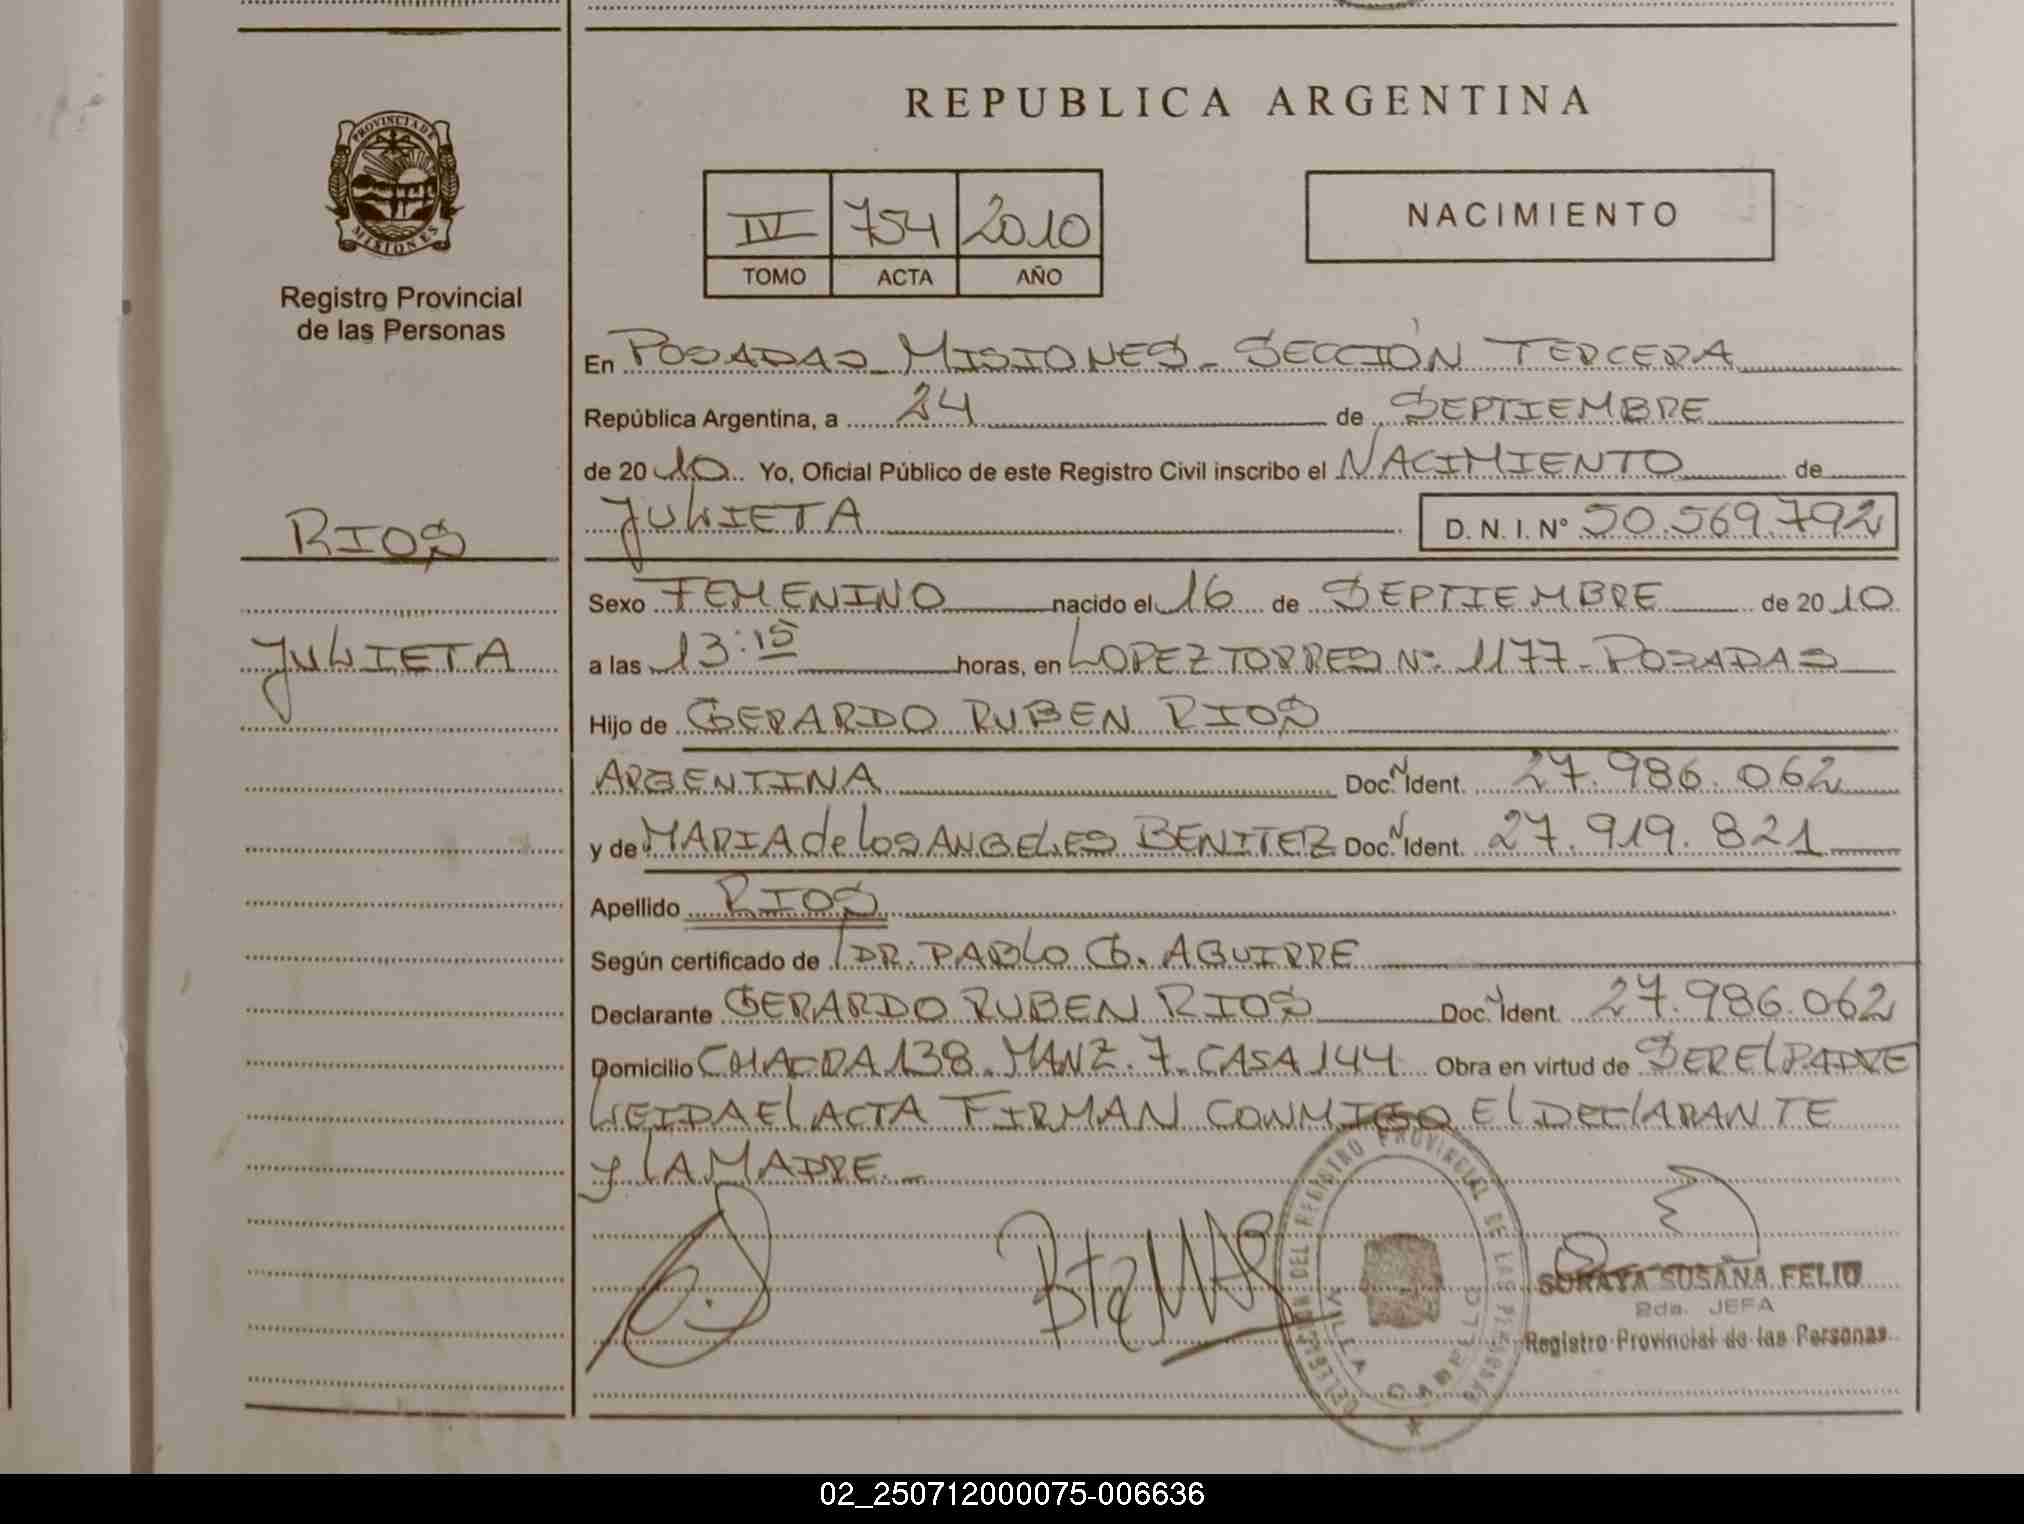 REPUBLICA ARGENTINA
PROVINCIA DE
MISIONES
Registro Provincial
de las Personas
IV 754 2010
TOMO ACTA AÑO
NACIMIENTO
En POSADAS_MISIONES_SECCIÓN TERCERA
República Argentina, a 24 de SEPTIEMBRE
de 2010 Yo, Oficial Público de este Registro Civil inscribo el NACIMIENTO de
JULIETA D. N. I. N° 50.569.792
RIOS
JULIETA
Sexo FEMENINO nacido el 16 de SEPTIEMBRE de 2010
a las 13:15 horas, en LOPEZ TORRES Nº 1177-POSADAS
Hijo de GERARDO RUBEN RIOS
ARGENTINA Doc. N Ident. 27.986.062
y de MARIA de Los ANGELES BENITEZ Doc. N Ident. 27.919.821
Apellido RIOS
Según certificado de DR. PABLO G. AGUIRRE
Declarante GERARDO RUBEN RIOS Doc. N Ident. 27.986.062
Domicilio CHACRA 138. MANZ. 7. CASA 144 Obra en virtud de SER El PADRE
LEIDA El ACTA FIRMAN CONMIGO El DEClARANTE
y lA MADRE._
DEL REGISTRO PROVINCIAL DE LAS PERSONAS
VILLA CABELLO
SORAYA SUSANA FELIU
2da. JEFA
Registro Provincial de las Personas
02_250712000075-006636